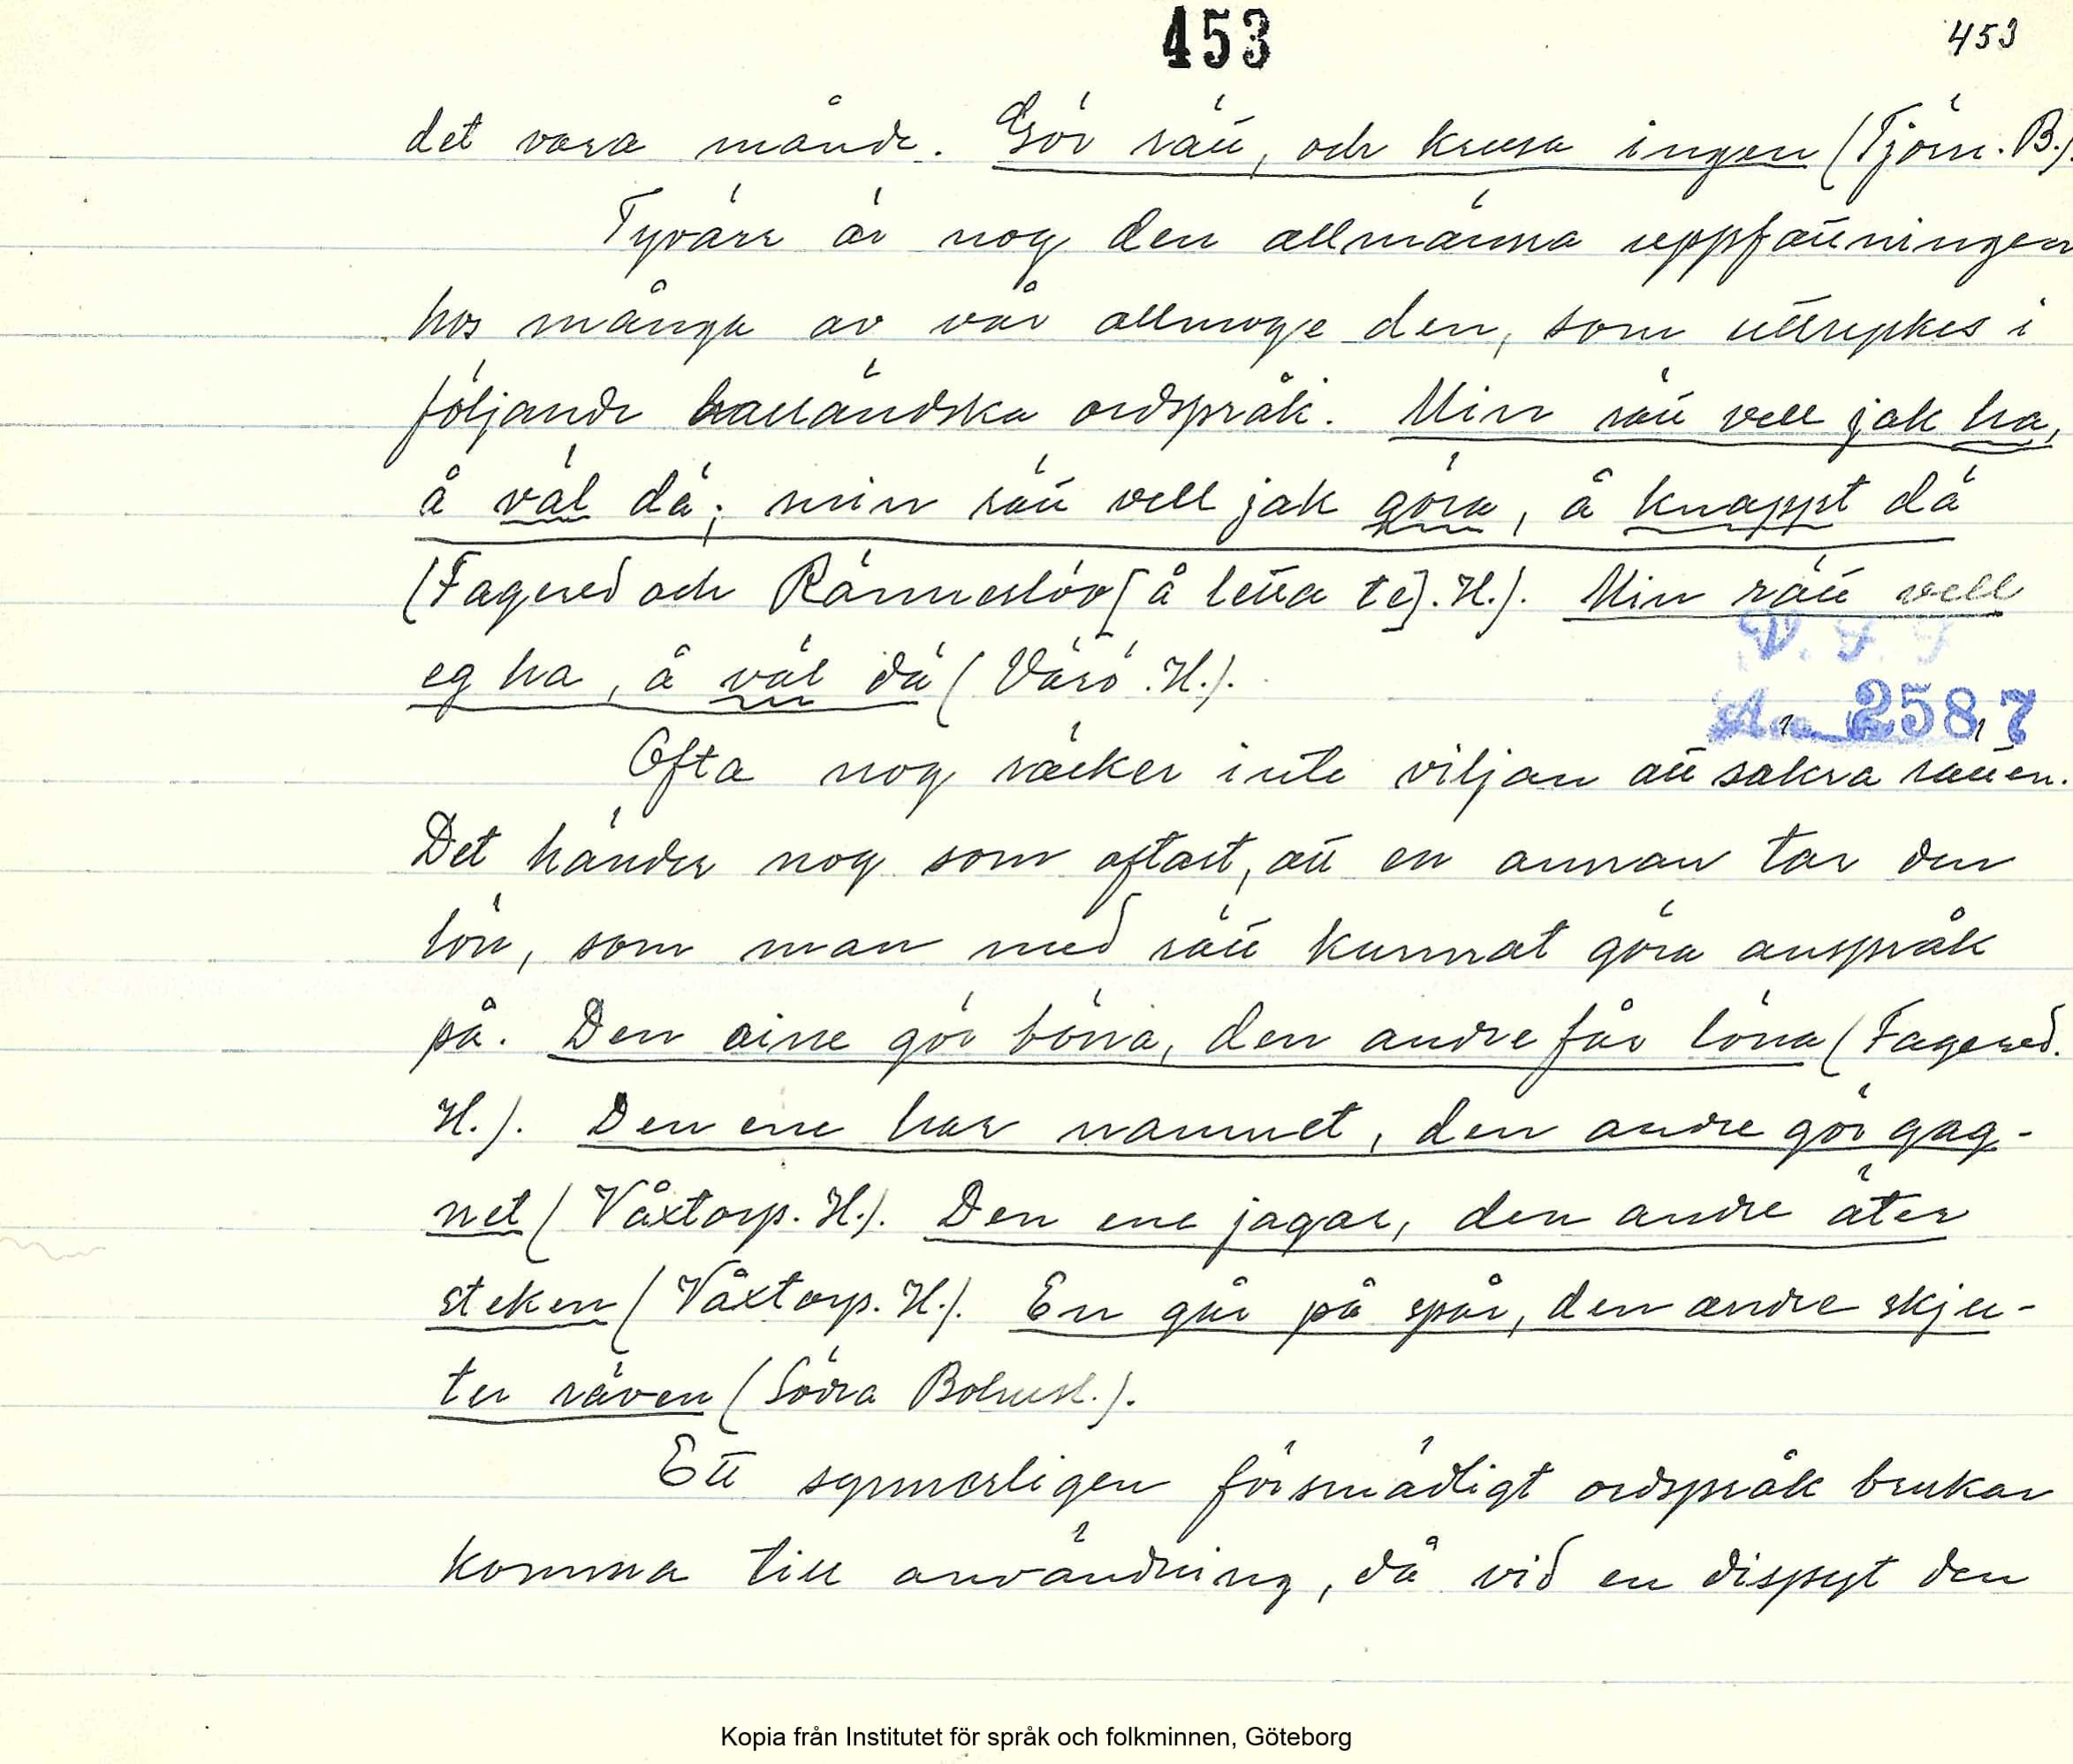 453
453
det vara månde. Gör rätt, och krusa ingen (Tjörn. B.).
Tyvärr är nog den allmänna uppfattningen
hos många av vår allmoge den, som uttryckes i
följande halländska ordspråk. Min rätt vell jak ha,
å väl dä; min rätt vell jak göra, å knappt dä
(Fagered och Ränneslöv [å letta te]. H.). Min rätt vell
eg ha, å väl dä (Värö. H.).
V. F. F
An 2587
Ofta nog räcker inte viljan att säkra rätten.
Det händer nog som oftast, att en annan tar den
lön, som man med rätt kunnat göra anspråk
på. Den eine gör böna, den andre får löna (Fagered.
H.). Den ene har namnet, den andre gör gag-
net (Våxtorp. H.). Den ene jagar, den andre äter
steken (Våxtorp. H.). En går på spår, den andre skju-
ter räven (Södra Bohusl.).
Ett synnerligen försmädligt ordspråk brukar
komma till användning, då vid en dispyt den
Kopia från Institutet för språk och folkminnen, Göteborg